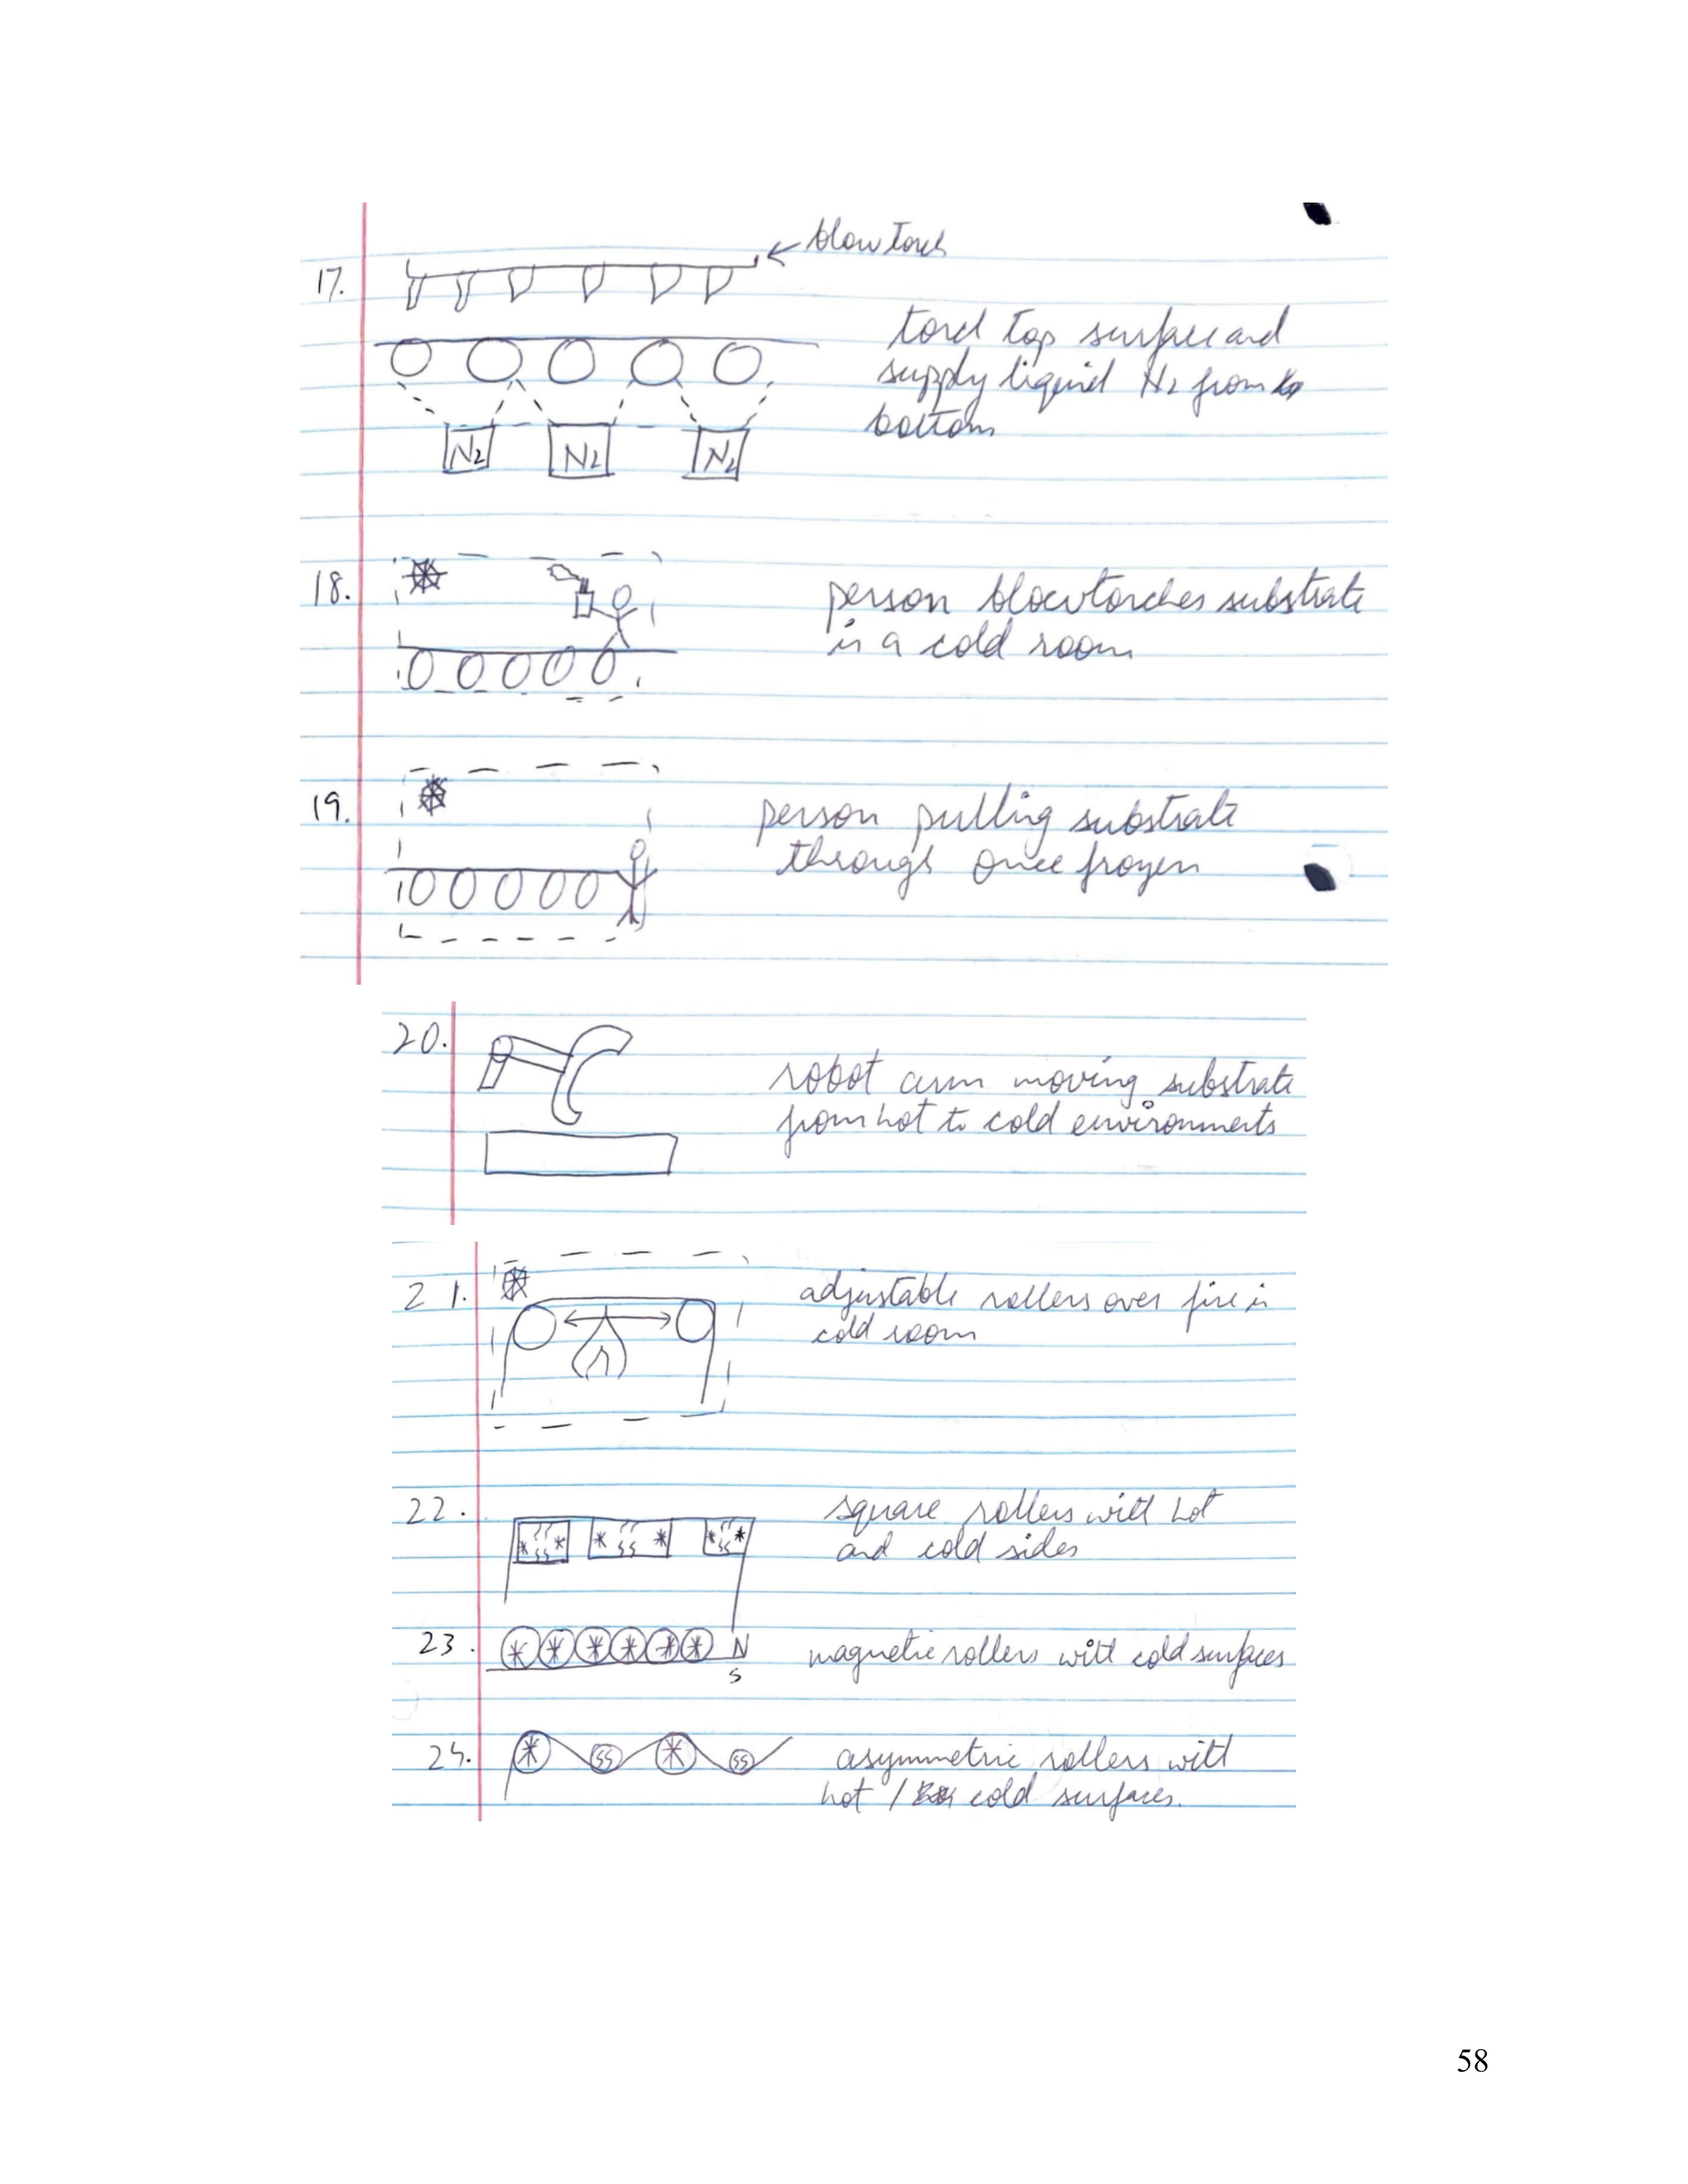 17.
blowtorch
torch top surface and
supply liquid N2 from
bottom
N2 N2 N2
18.
person blowtorches substrate
in a cold room
19.
person pulling substrate
through once frozen
20.
robot arm moving substrate
from hot to cold environments
21.
adjustable rollers over fire in
cold room
22.
square rollers with hot
and cold sides
23.
N
S
magnetic rollers with cold surfaces
24.
asymmetric rollers with
hot / cold surfaces.
58